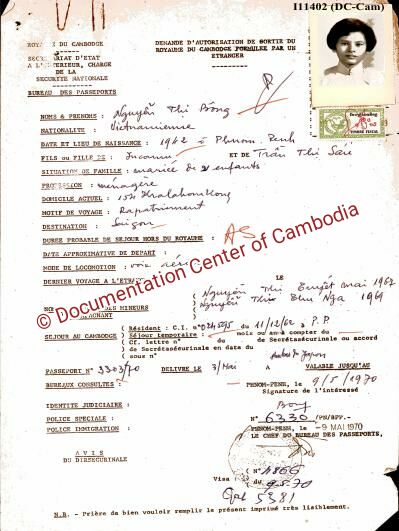 I11402 (DC-Cam)
ROYAUME DU CAMBODGE
DEMANDE D'AUTORISATION DE SORTIE DU ROYAUME DU CAMBODGE FORMULEE PAR UN ETRANGER
SECRETARIAT D'ETAT A L'INTERIEUR, CHARGE DE LA SECURITE NATIONALE
BUREAU DES PASSEPORTS
TIMBRE FISCAL
NOMS & PRENOMS : Nguyễn Thị Bông
NATIONALITE : Vietnamienne
DATE ET LIEU DE NAISSANCE : 1942 à Phnom-Penh
FILS ou FILLE DE : Inconnu ET DE Trần Thị Sáu
SITUATION DE FAMILLE : mariée 2 enfants
PROFESSION : ménagère
DOMICILE ACTUEL : 154
MOTIF DE VOYAGE : Rapatriement
DESTINATION : Saigon
DUREE PROBABLE DE SEJOUR HORS DU ROYAUME :
DATE APPROXIMATIVE DE DEPART :
MODE DE LOCOMOTION : voie
DERNIER VOYAGE A L'ETR LE
Nguyễn Thị Tuyết Mai 1967
DES MINEURS Nguyễn Thị Thu Nga 1969
GNANT
© Documentation Center of Cambodia
SEJOUR AU CAMBODGE : ( Résident : C.I. n° du 11/12/62 à P.P
( Séjour temporaire : mois ou an à compter du
( Cf. lettre n° du de Secrétasécurinale ou accord
( de Secrétasécurinale en date du
( sous n°
PASSEPORT N° 3303/70 DELIVRE LE 3/Mai VALABLE JUSQU'AU
BUREAUX CONSULTES : PHNOM-PENH, 9/5/1970
Signature de l'intéressé
Bông
IDENTITE JUDICIAIRE :
POLICE SPECIALE : N° 6330 /PN/BPP.-
POLICE IMMIGRATION : PHNOM-PENH, LE -9 MAI 1970
LE CHEF DU BUREAU DES PASSEPORTS,
AVIS DU DIRSECURINALE
Visa : ( N° 4866
( du 9.5.70
5381
N.B. - Prière de bien vouloir remplir le présent imprimé très lisiblement.